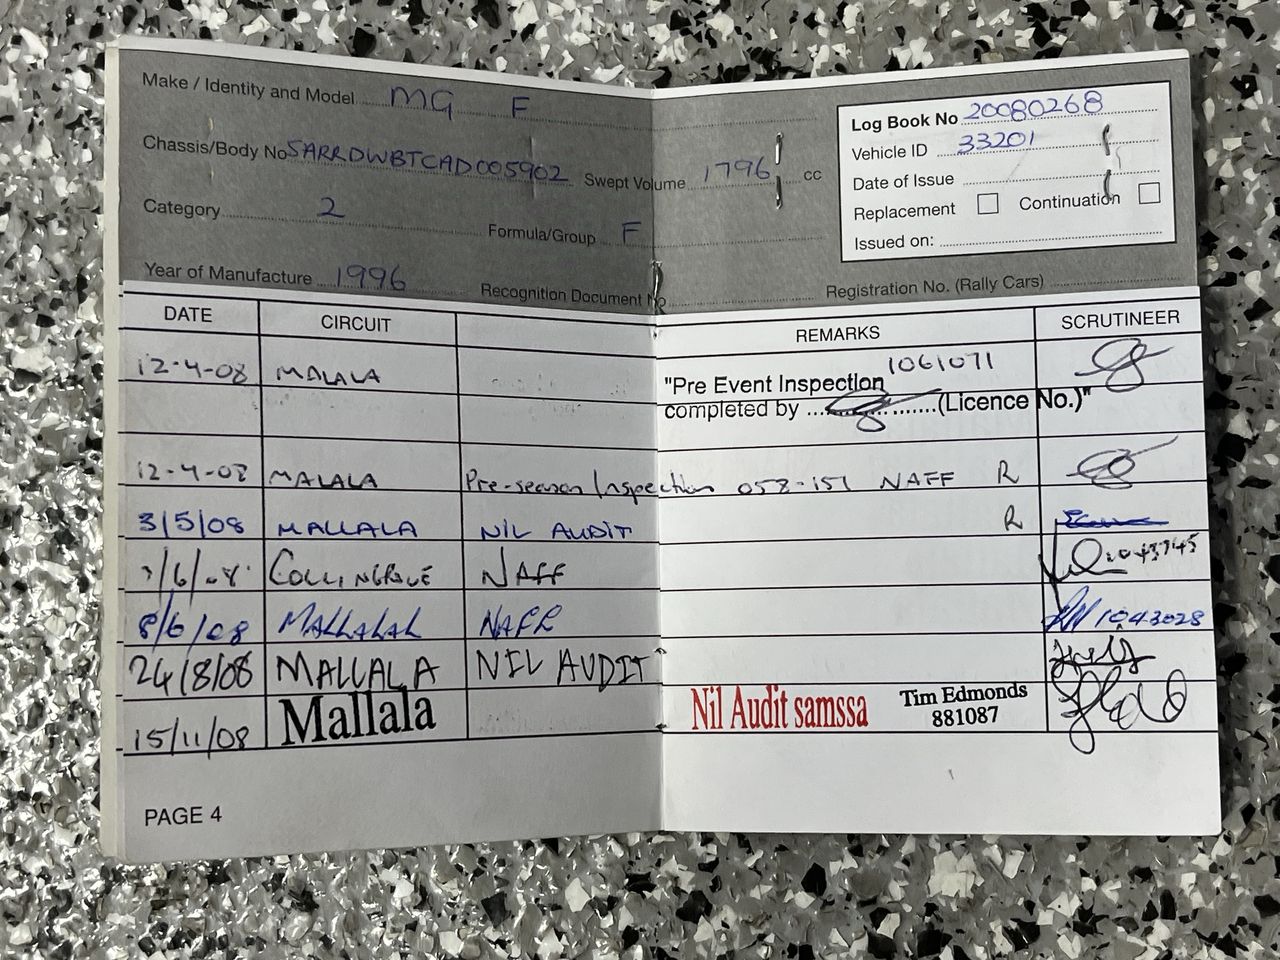 Make / Identity and Model MG F
Log Book No 20080268
Vehicle ID 33201
Date of Issue
Replacement Continuation
Issued on:
Chassis/Body No SARRDWBTCAD005902 Swept Volume 1796 cc
Category 2 Formula/Group F
Year of Manufacture 1996 Recognition Document No Registration No. (Rally Cars)
DATE CIRCUIT REMARKS SCRUTINEER
12-4-08 MALALA 1061071
"Pre Event Inspection
completed by (Licence No.)"
12-4-08 MALALA Pre-season Inspection 058-151 NAFF R
3/5/08 MALLALA NIL AUDIT R
/6/08 COLLINGROVE NAFF
8/6/08 MALLALAL NAFF 1043028
24/8/08 MALLALA NIL AUDIT
15/11/08 Mallala Nil Audit samssa Tim Edmonds
881087
PAGE 4